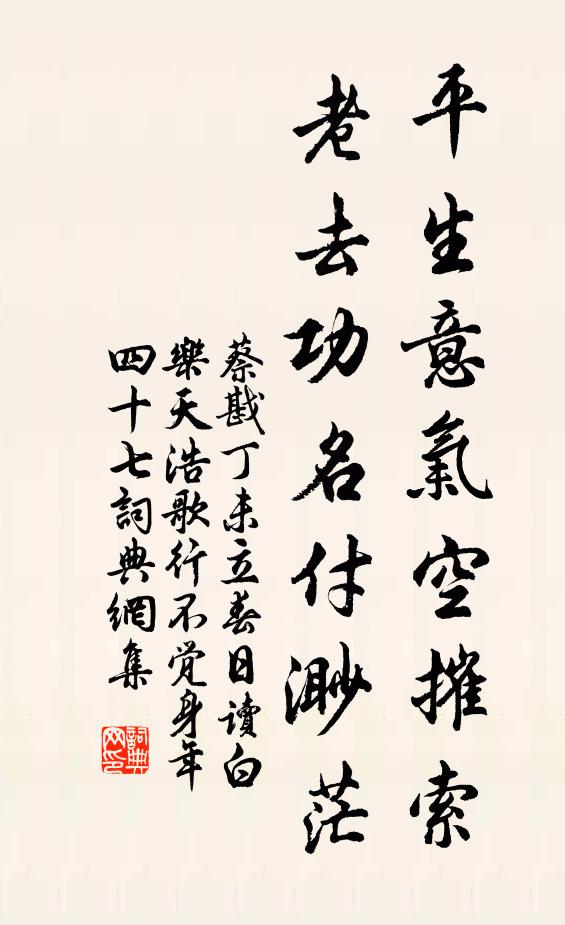 平生意氣空摧索
老去功名付渺茫
蔡戡丁未立春日讀白
樂天浩歌行不覚身年
四十七詞典網集
詞典网印